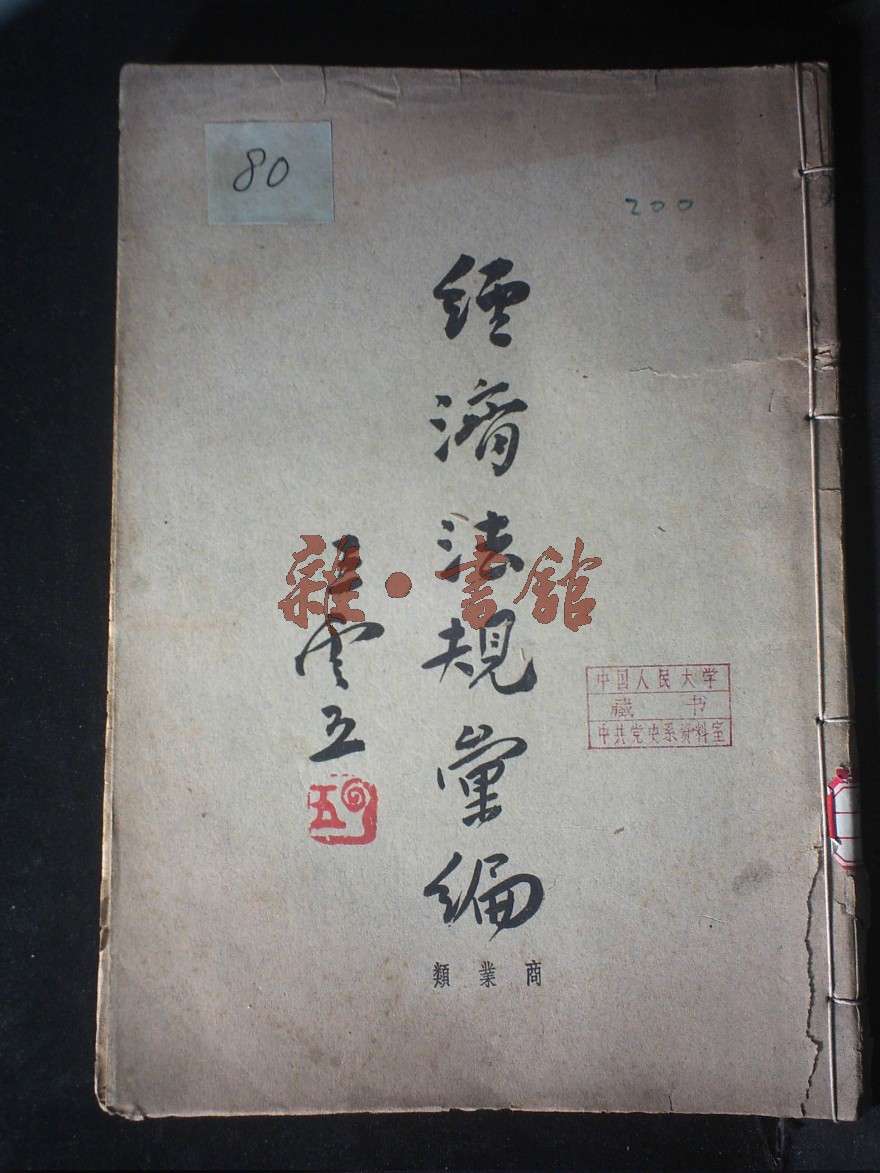 80
200
經濟法規彙編
商業類
王雲五
五
雜·書館
中国人民大学
藏书
中共党史系资料室